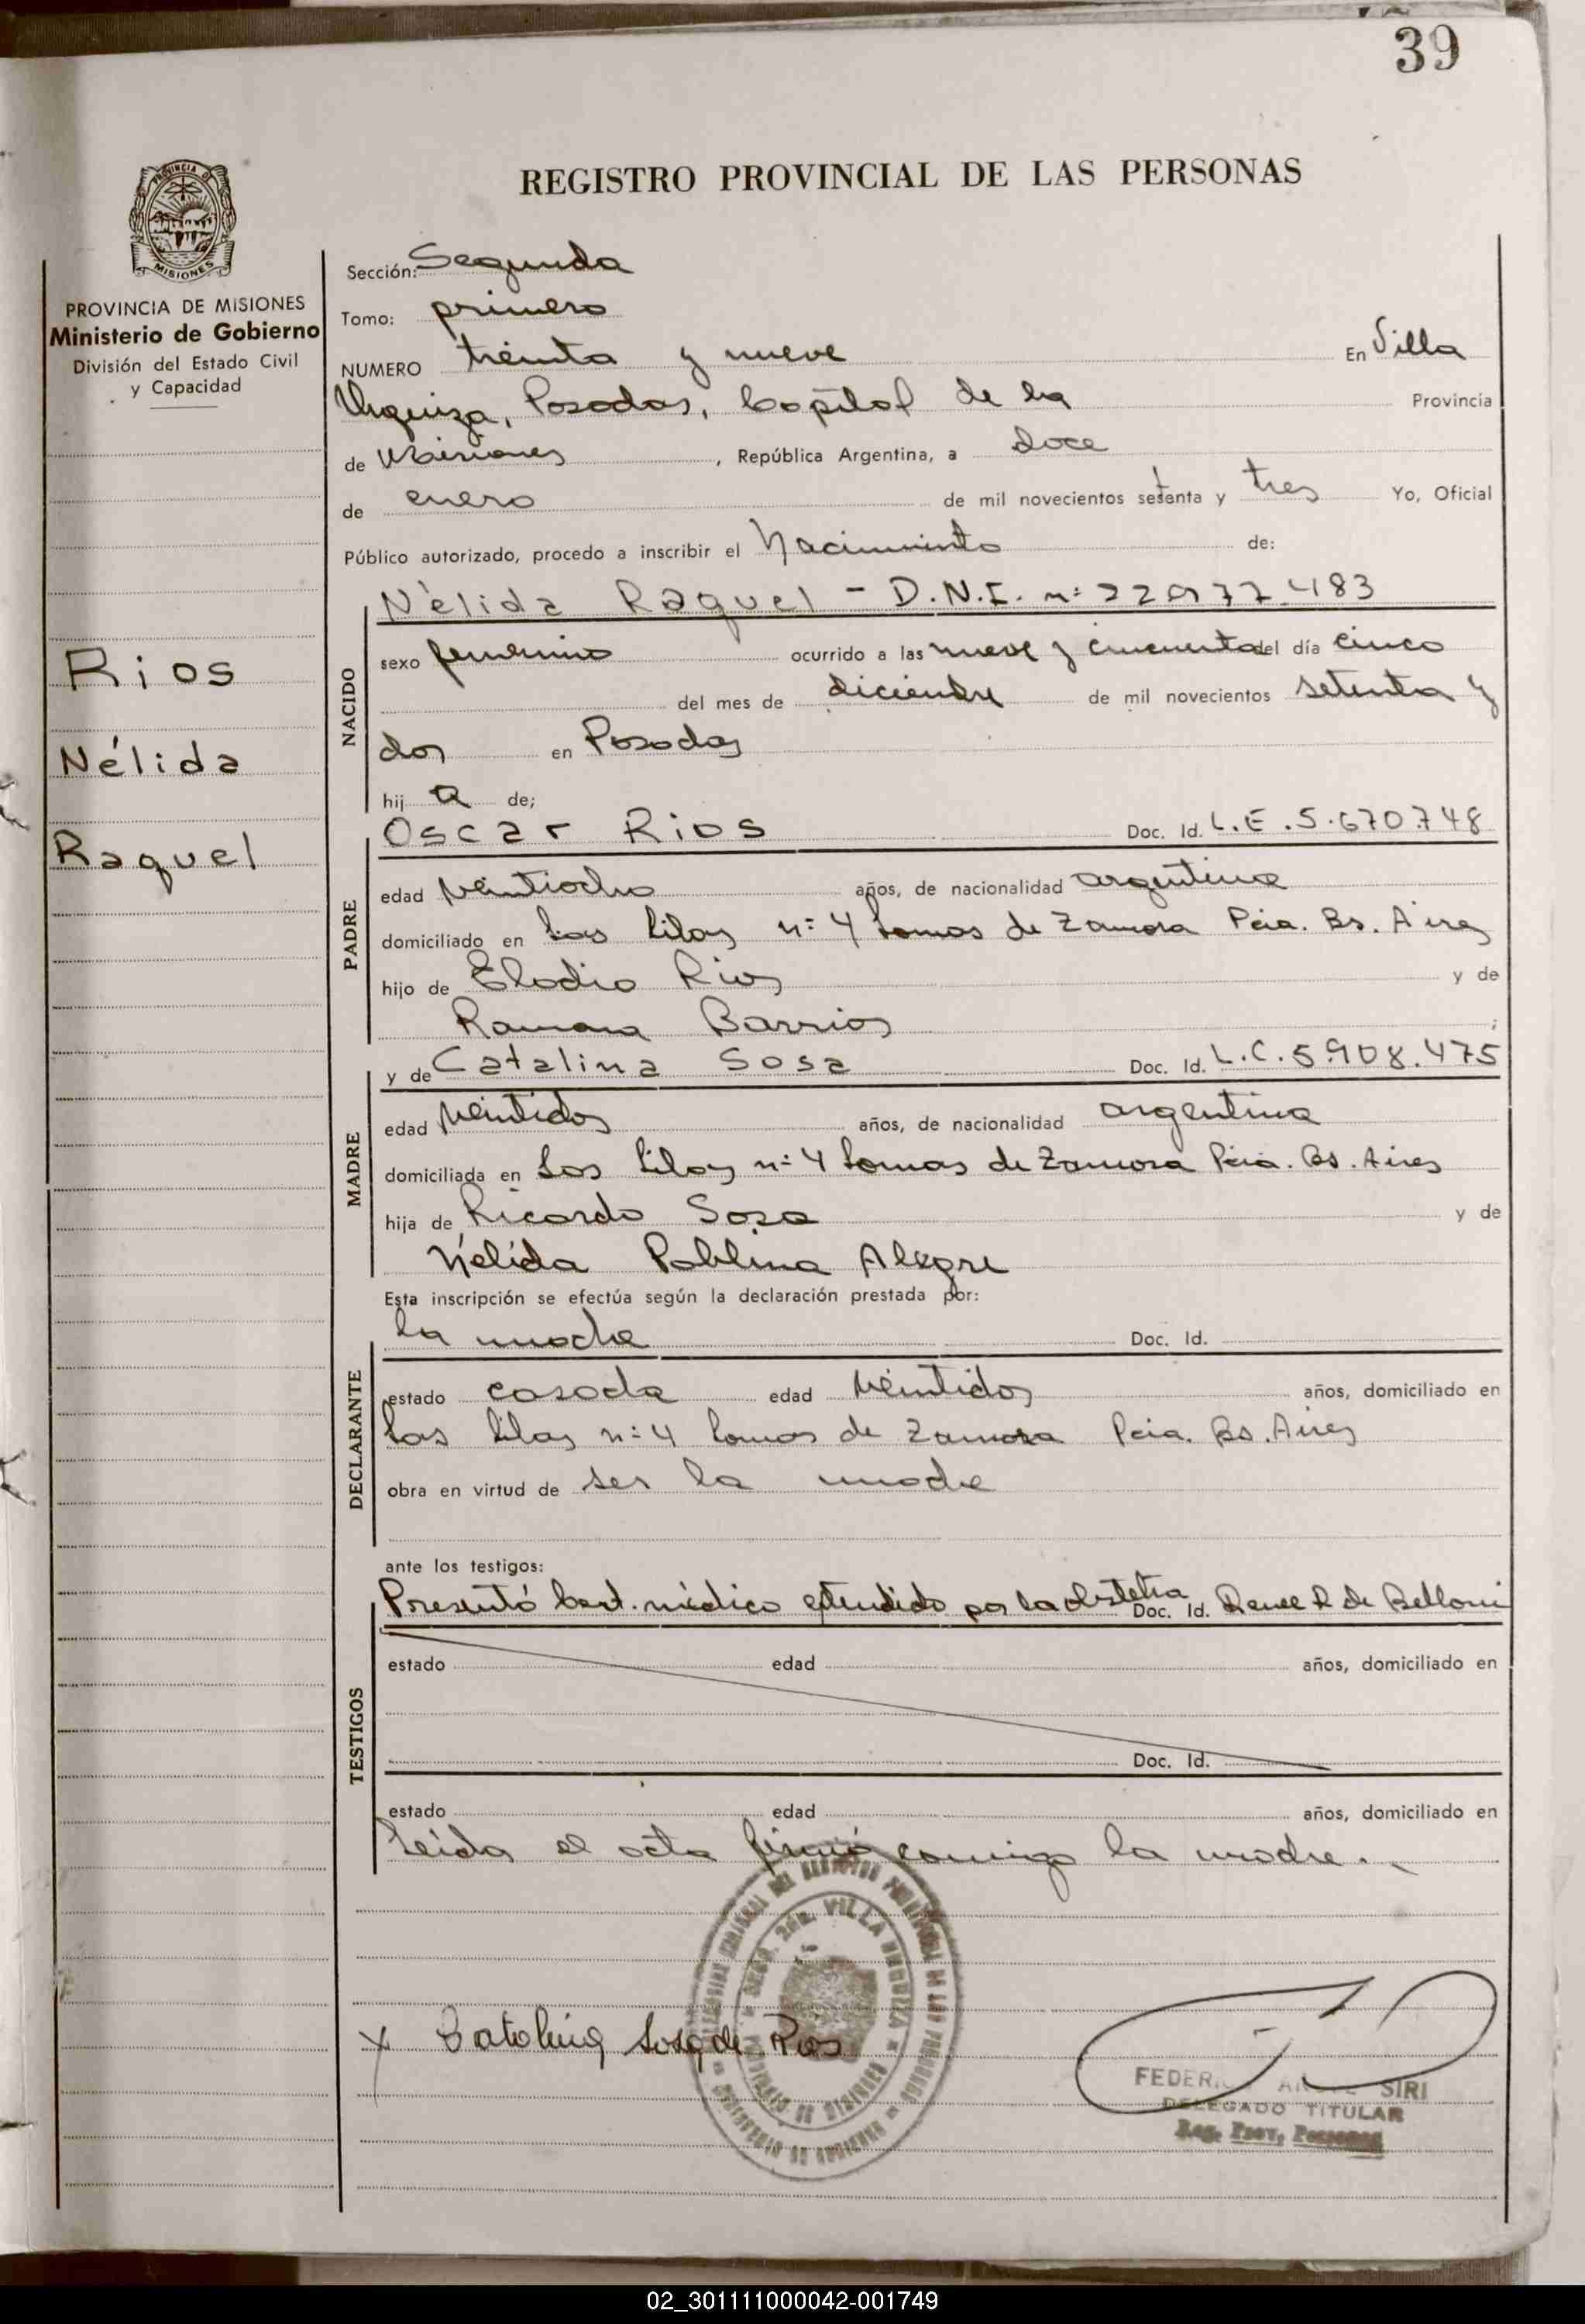 39
REGISTRO PROVINCIAL DE LAS PERSONAS
PROVINCIA DE MISIONES
Ministerio de Gobierno
División del Estado Civil
y Capacidad
Rios
Nélida
Raquel
Sección: Segunda
Tomo: primero
NUMERO treinta y nueve En Villa
Urquiza, Posadas, Capital de la Provincia
de Misiones, República Argentina, a doce
de enero de mil novecientos setenta y tres Yo, Oficial
Público autorizado, procedo a inscribir el Nacimiento de:
Nélida Raquel - D.N.I. nº 22.977.483
NACIDO
sexo femenino ocurrido a las nueve y cincuenta del día cinco
del mes de diciembre de mil novecientos setenta y
dos en Posadas
hij a de;
Oscar Rios Doc. Id. L.E. 5.670.748
PADRE
edad veintiocho años, de nacionalidad argentina
domiciliado en Las Lilas nº 4 Lomas de Zamora Pcia. Bs. Aires
hijo de Elodio Rios y de
Ramona Barrios ;
y de Catalina Sosa Doc. Id. L.C. 5.908.475
MADRE
edad veintidos años, de nacionalidad argentina
domiciliada en Las Lilas nº 4 Lomas de Zamora Pcia. Bs. Aires
hija de Ricardo Sosa y de
Nélida Poblina Alegre
Esta inscripción se efectúa según la declaración prestada por:
la madre Doc. Id.
DECLARANTE
estado casada edad veintidos años, domiciliado en
Las Lilas nº 4 Lomas de Zamora Pcia. Bs. Aires
obra en virtud de ser la madre
ante los testigos:
Presentó Cert. médico extendido por la obstetra Doc. Id. Renee R de Belloni
TESTIGOS
estado edad años, domiciliado en
Doc. Id.
estado edad años, domiciliado en
Leída el acta firmó conmigo la madre.
x Catalina Sosa de Rios
SIRI
DELEGADO TITULAR
Reg. Prov. Personas
02_301111000042-001749